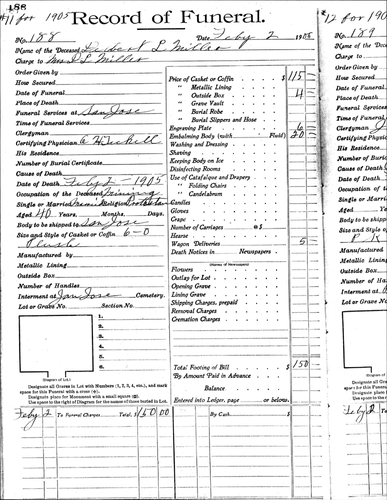 188
#11 for 1905 Record of Funeral.
No. 188 Date Feby 2 1905
Name of the Deceased Delbert L Miller
Charge to Mrs D L Miller
Order Given by
How Secured
Date of Funeral
Place of Death
Funeral Services at San Jose
Time of Funeral Services
Clergyman
Certifying Physician
His Residence
Number of Burial Certificate
Cause of Death
Date of Death Feby 2 - 1905
Occupation of the Deceased
Single or Married Religion
Aged 40 Years, Months, Days.
Body to be shipped to San Jose
Size and Style of Casket or Coffin 6-0
Plush
Manufactured by
Metallic Lining
Outside Box
Number of Handles
Interment at San Jose Cemetery.
Lot or Grave No. Section No.
1.
2.
3.
4.
5.
6.
(Diagram of Lot.)
Designate all Graves in Lot with Numbers (1, 2, 3, 4, etc.), and mark
space for this Funeral with a cross (+).
Designate place for Monument with a small square (□).
Use space to the right of Diagram for the names of those buried in Lot.
Price of Casket or Coffin $ 115
" Metallic Lining
" Outside Box 4
" Grave Vault
" Burial Robe
" Burial Slippers and Hose
Engraving Plate 6
Embalming Body (with Fluid) 20
Washing and Dressing
Shaving
Keeping Body on Ice
Disinfecting Rooms
Use of Catafalque and Drapery
" Folding Chairs
" Candelabrum
Candles
Gloves
Crape
Number of Carriages @ $
Hearse
Wagon Deliveries 5
Death Notices in Newspapers
(Names of Newspapers)
Flowers
Outlay for Lot
Opening Grave
Lining Grave
Shipping Charges, prepaid
Removal Charges
Cremation Charges
Total Footing of Bill $ 150
By Amount Paid in Advance
Balance
Entered into Ledger, page or below.
Feby 2 To Funeral Charges Total, $ 150 00 By Cash $
#12 for 1905
No. 189
Name of the
Charge to
Order Given
How Secured
Date of Funeral
Place of Death
Funeral Services
Time of Funeral
Clergyman
Certifying
His Residence
Number of
Cause of Death
Date of Death
Occupation
Single or Married
Aged
Body to be
Size and Style
Manufactured
Metallic Lining
Outside Box
Number of
Interment
Lot or Grave
Feby 2